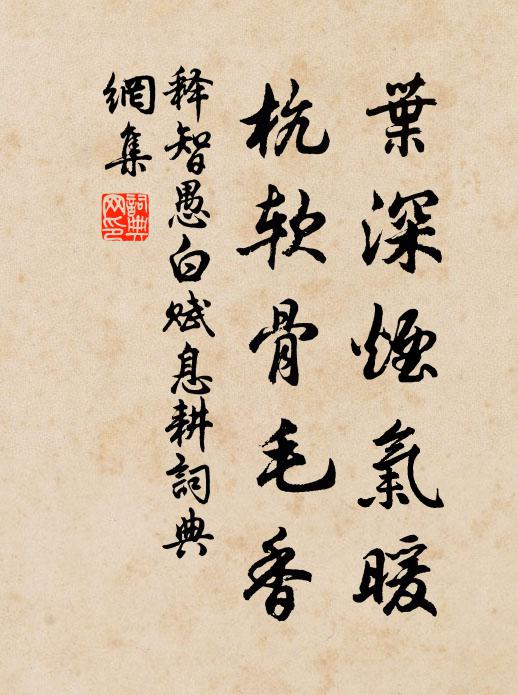 葉深煙氣暖
杭软骨毛香
释智愚白赋息耕詞典
網集
詞典
网印